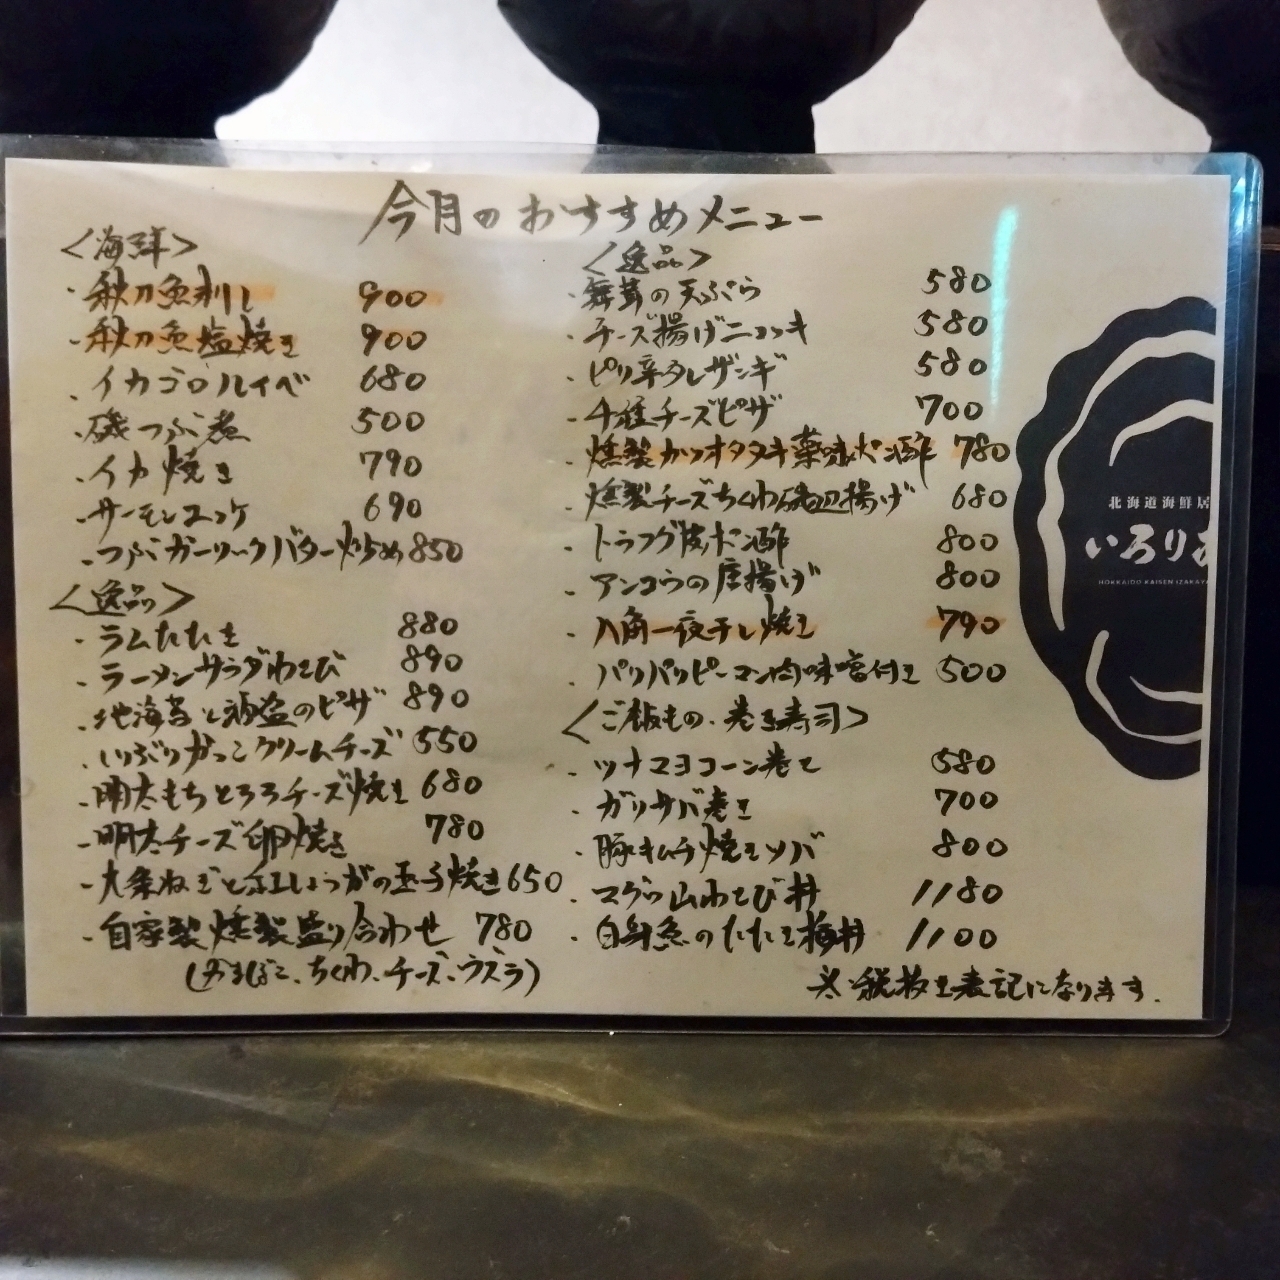 今月のおすすめメニュー
<海鮮>
・秋刀魚刺し 900
・秋刀魚塩焼き 900
・イカゴロルイベ 680
・磯つぶ煮 500
・イカ焼き 790
・サーモンユッケ 690
・つぶガーリックバター炒め 850
<逸品>
・ラムたたき 880
・ラーメンサラダわさび 890
・地海苔と酒盗のピザ 890
・いぶりがっこクリームチーズ 550
・明太もちとろろチーズ焼き 680
・明太チーズ卵焼き 780
・九条ねぎと紅しょうがの玉子焼き 650
・自家製燻製盛り合わせ 780
(かまぼこ、ちくわ、チーズ、ウズラ)
<逸品>
・舞茸の天ぷら 580
・チーズ揚げニョッキ 580
・ピリ辛タレザンギ 580
・4種チーズピザ 700
・燻製カツオタタキ薬味ポン酢 780
・燻製チーズちくわ磯辺揚げ 680
・トラフグ皮ポン酢 800
・アンコウの唐揚げ 800
・八角一夜干し焼き 790
・パリパリピーマン肉味噌付き 500
<ご飯もの・巻き寿司>
・ツナマヨコーン巻き 580
・ガリサバ巻き 700
・豚キムチ焼きソバ 800
・マグロ山わさび丼 1180
・白身魚のたたき梅丼 1100
※税抜き表記になります。
北海道海鮮居
いろりあ
HOKKAIDO KAISEN IZAKAYA